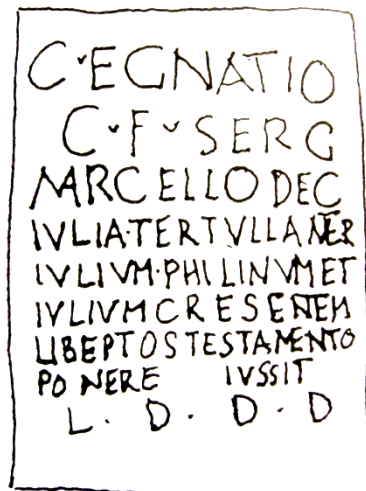 C ˇ EGNATIO
C ˇ F ˇ SERG
MARCELLO DEC
IVLIA·TERTVLLA
IVLIVM·PHILINVM ET
IVLIVM
LIBEPTOS TESTAMENTO
PONERE IVSSIT
L · D · D · D